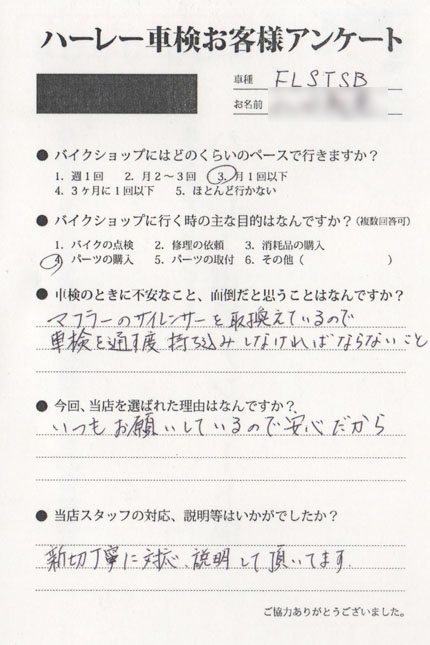 ハーレー車検お客様アンケート
車種 FLSTSB
お名前
● バイクショップにはどのくらいのペースで行きますか？
1. 週1回 2. 月2～3回 3. 月1回以下
4. 3ヶ月に1回以下 5. ほとんど行かない
● バイクショップに行く時の主な目的はなんですか？(複数回答可)
1. バイクの点検 2. 修理の依頼 3. 消耗品の購入
4. パーツの購入 5. パーツの取付 6. その他（ ）
● 車検のときに不安なこと、面倒だと思うことはなんですか？
マフラーのサイレンサーを取換えているので
車検を通す度持ち込みしなければならないこと
● 今回、当店を選ばれた理由はなんですか？
いつもお願いしているので安心だから
● 当店スタッフの対応、説明等はいかがでしたか？
親切丁寧に対応、説明して頂いてます.
ご協力ありがとうございました。